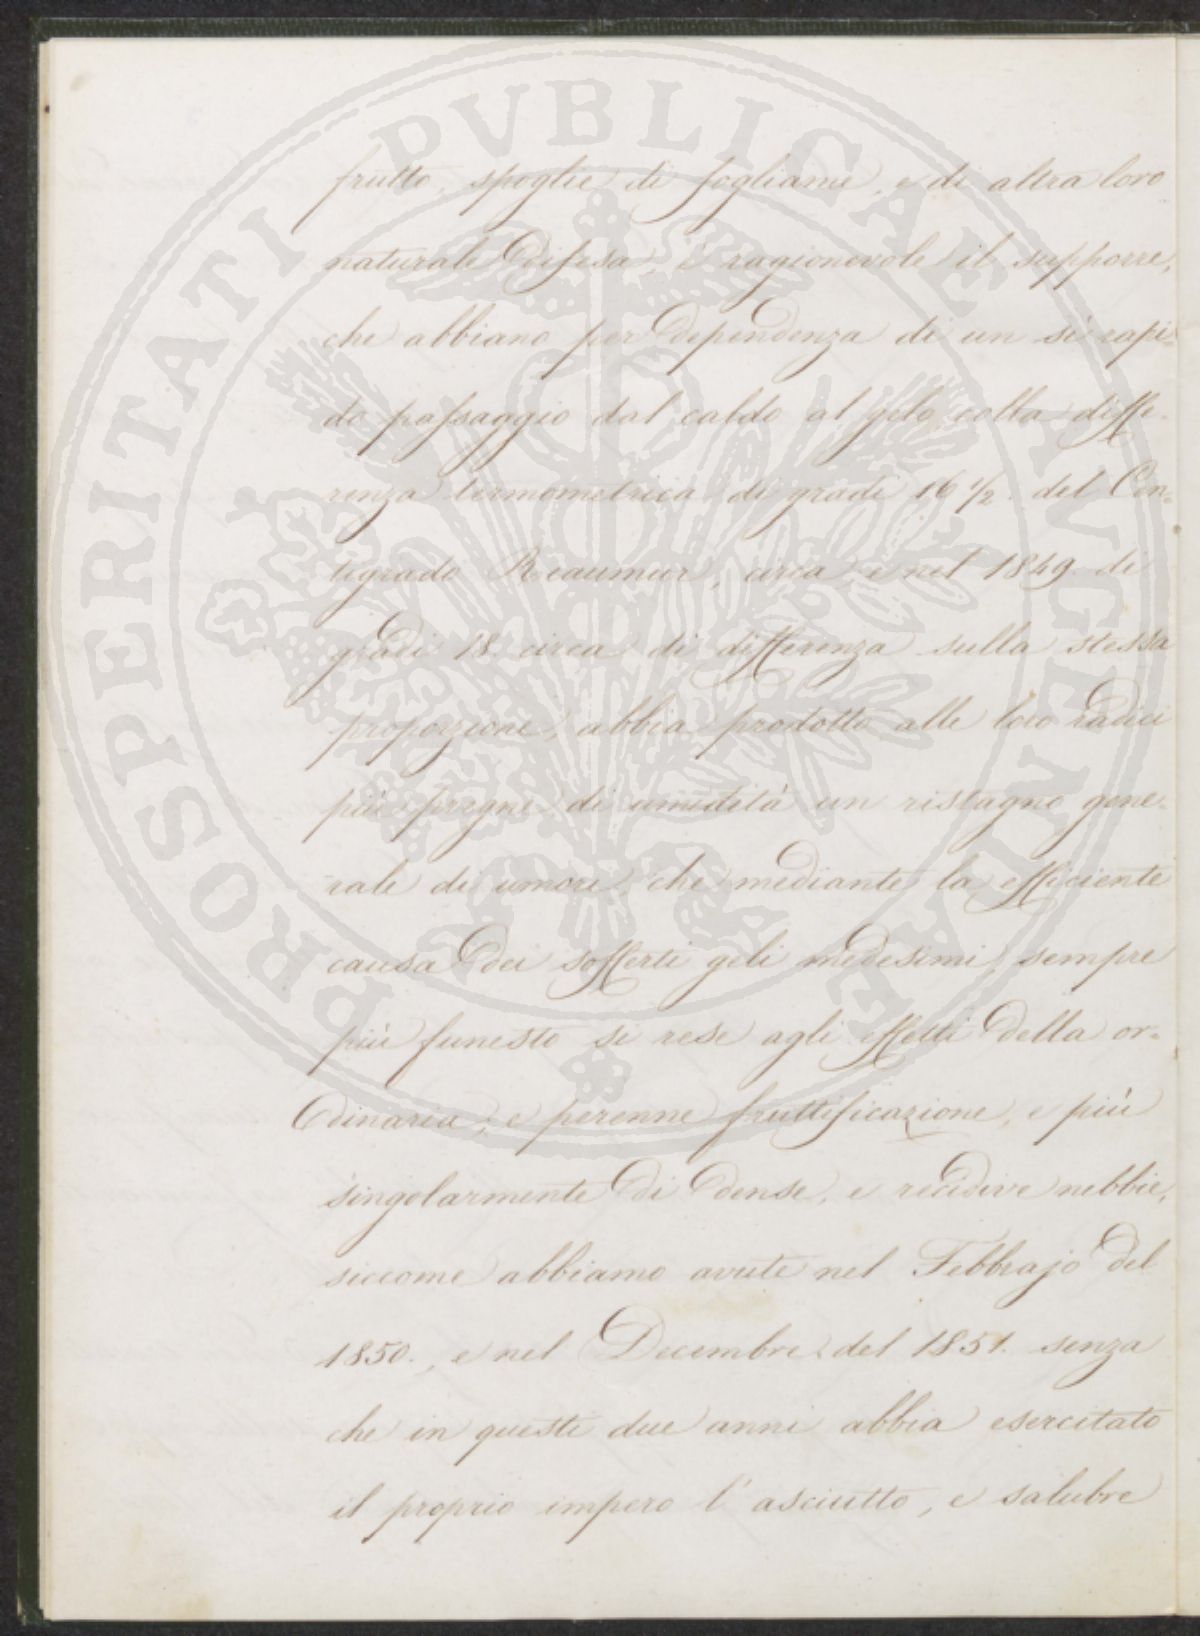 frutto, spoglie di fogliame, e di altra loro
naturale difesa, è ragionevole il supporre,
che abbiano per dependenza di un sì rapi=
do passaggio dal caldo al gelo colla diffe=
renza termometrica di gradi 16 1/2. del Cen=
tigrado Reaumur, circa e nel 1849. di
gradi 18. circa di differenza sulla stessa
proporzione, abbia prodotto alle loro radici
più pregne di umidità un ristagno gene=
rale di umore, che mediante la efficiente
causa dei sofferti geli medesimi, sempre
più funesto si rese agli effetti della or=
dinaria, e perenne fruttificazione, e più
singolarmente di dense, e recidive nebbie,
siccome abbiamo avute nel Febbrajo del
1850., e nel Decembre del 1851. senza
che in questi due anni abbia esercitato
il proprio impero l'asciutto, e salubre
PROSPERITATI PVBLICAE AVGENDAE